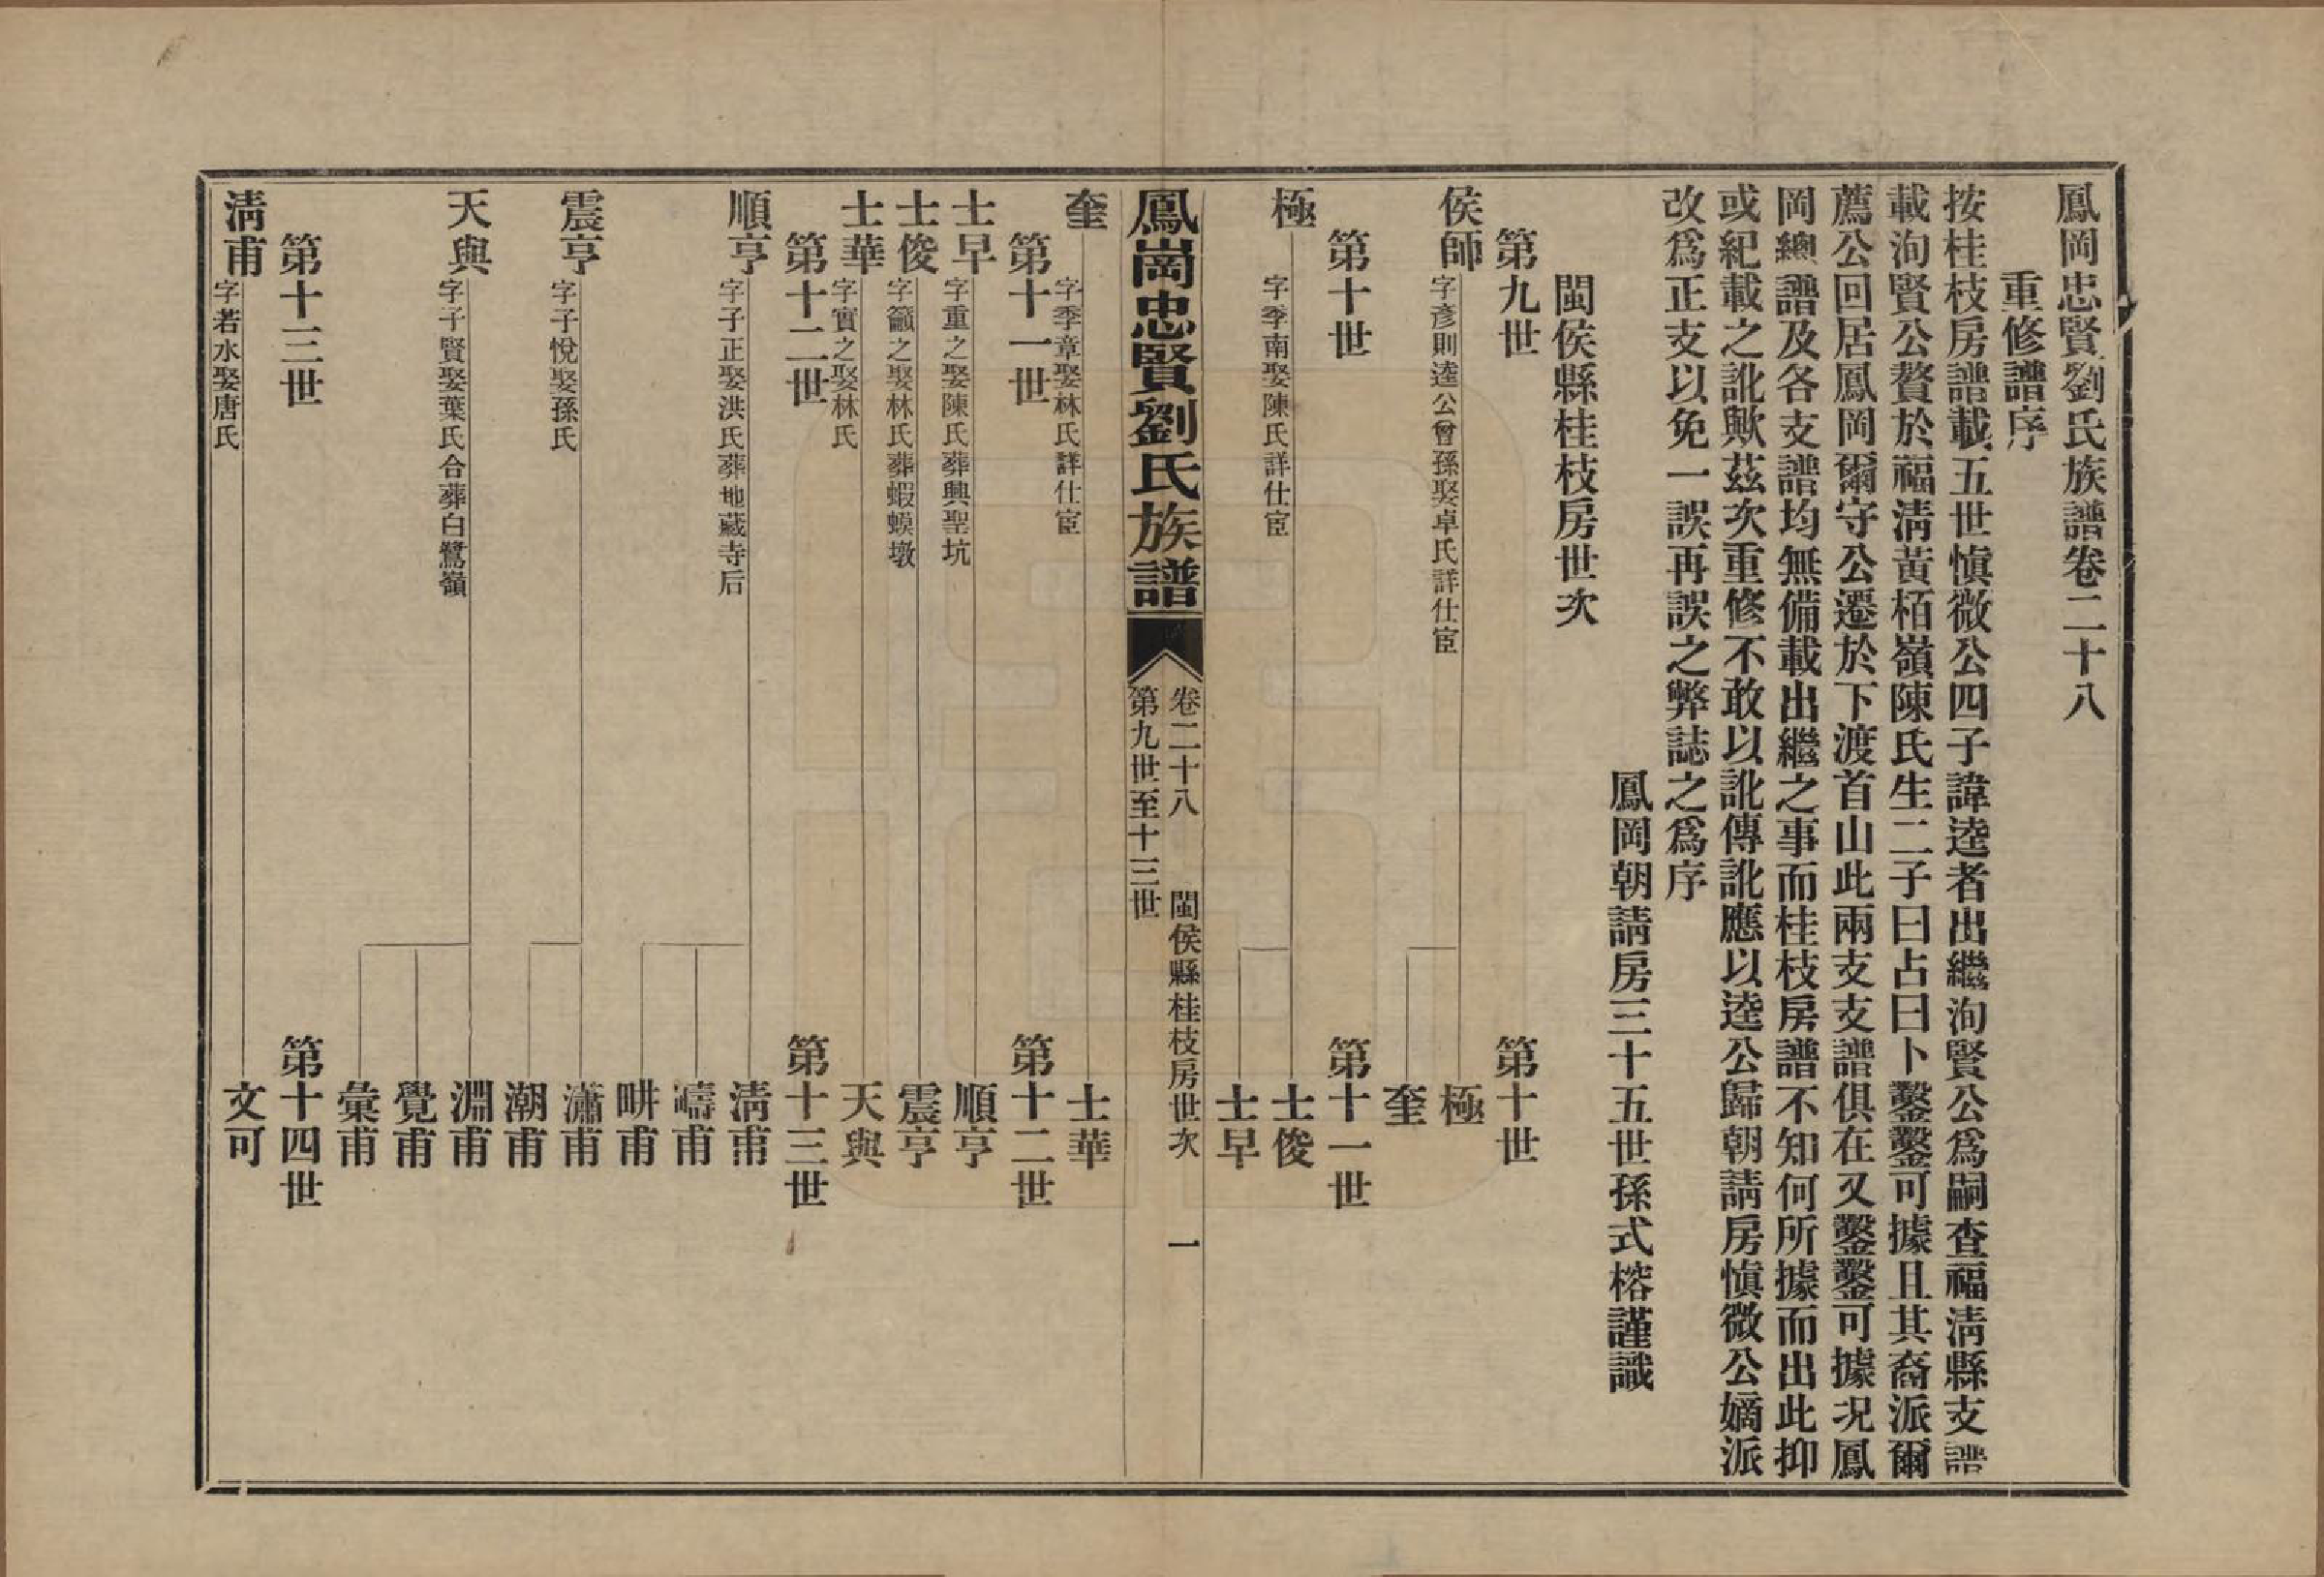 鳳岡忠賢劉氏族譜卷二十八
重修譜序
按桂枝房譜載五世愼微公四子諱逵者出繼洵賢公爲嗣查福淸縣支譜
載洵賢公贅於福淸黃栢嶺陳氏生二子曰占曰卜鑿鑿可據且其裔派爾
薦公回居鳳岡爾守公遷於下渡首山此兩支支譜俱在又鑿鑿可據况鳳
岡總譜及各支譜均無備載出繼之事而桂枝房譜不知何所據而出此抑
或紀載之訛歟茲次重修不敢以訛傳訛應以逵公歸朝請房愼微公嫡派
改爲正支以免一誤再誤之弊誌之爲序
鳳岡朝請房三十五世孫式榕謹識
閩侯縣桂枝房世次
第九世 第十世
侯師 字彥則逵公曾孫娶卓氏詳仕宦 極
奎
第十世 第十一世
極 字季南娶陳氏詳仕宦 士俊
士早
鳳崗忠賢劉氏族譜 卷二十八 閩侯縣桂枝房世次 一
第九世至十三世
奎 字季章娶林氏詳仕宦 士華
第十一世 第十二世
士早 字重之娶陳氏葬興聖坑 順亨
士俊 字籲之娶林氏葬蝦蟆墩 震亨
士華 字實之娶林氏 天與
第十二世 第十三世
順亨 字子正娶洪氏葬地藏寺后 淸甫
疇甫
畊甫
震亨 字子悅娶孫氏 瀟甫
潮甫
天與 字子賢娶葉氏合葬白鷺嶺 淵甫
覺甫
彙甫
第十三世 第十四世
淸甫 字若水娶唐氏 文可